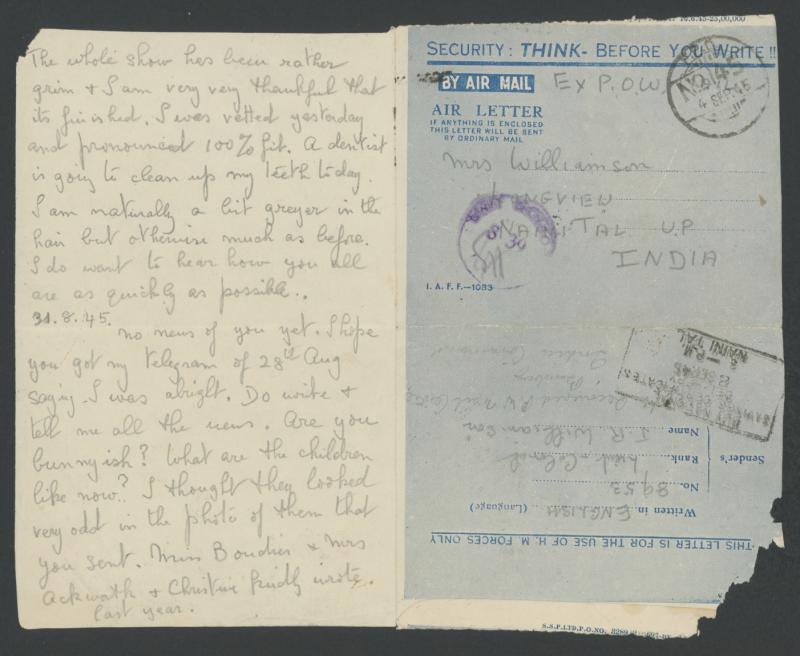 The whole show has been rather
grim & I am very very thankful that
its finished. I was vetted yesterday
and pronounced 100% fit. A dentist
is going to clean up my teeth today.
I am naturally a bit greyer in the
hair but otherwise much as before.
I do want to hear how you all
are as quickly as possible..
31.8.45.
no news of you yet. I hope
you got my telegram of 28th Aug
saying I was alright. Do write &
tell me all the news. Are you
bunnyish? What are the children
like now? I thought they looked
very odd in the photo of them that
you sent. Miss Boudier & Mrs
Ackwath & Christine kindly wrote
last year.
SECURITY: THINK- BEFORE YOU WRITE !!
BY AIR MAIL
Ex P.O.W.
No 145
4 SEP. 45
AIR LETTER
IF ANYTHING IS ENCLOSED
THIS LETTER WILL BE SENT
BY ORDINARY MAIL
Mrs Williamson
NAINITAL U.P
INDIA
I. A. F. F.—1083
NAINI TAL
Recovered P.W. Mail Centre
Bombay
India Command
Sender's
Name I.R. Williamson
Rank Lieut-Colonel
No. 8953
Written in ENGLISH (Language)
THIS LETTER IS FOR THE USE OF H. M. FORCES ONLY
S.S.P.LTD.P.O.NO.